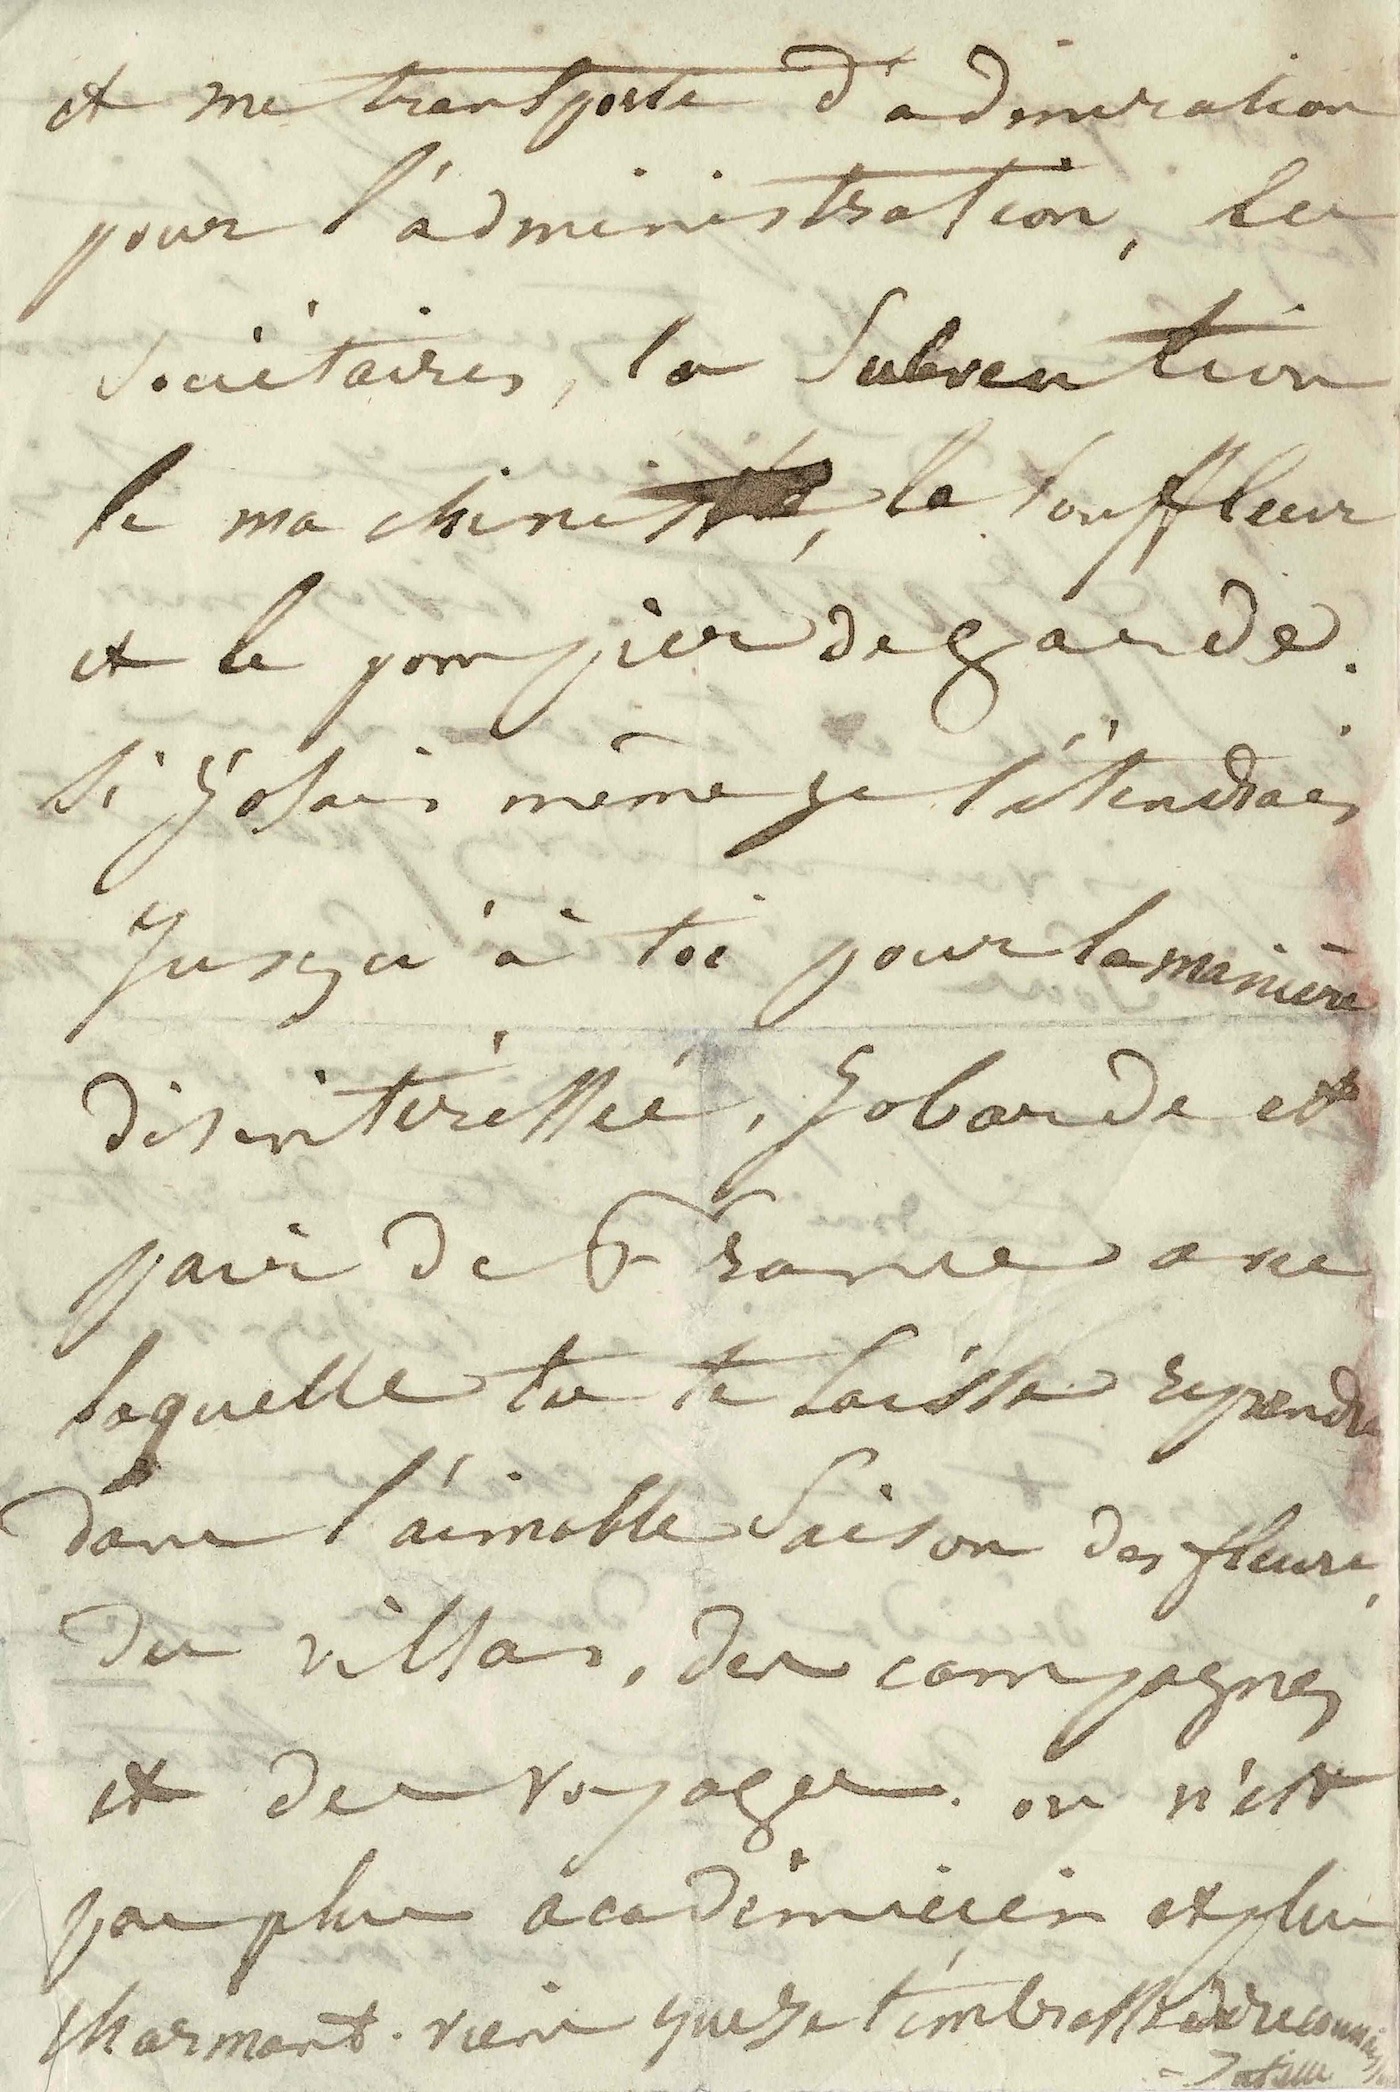 et me transporte d'admiration
pour l'administration, les
Sociétaires, la Subvention
le machiniste, le Souffleur
et le pompier de garde.
Si j'osais même je l'étendrais
Jusqu'à toi pour la manière
désintéressée, Jobarde et
pair de France avec
laquelle tu te laisse reprendre
dans l'aimable Saison des fleurs,
des villas, des campagnes
et des voyages. on n'est
pas plus académicien et plus
charmant. viens que je t'embrasse